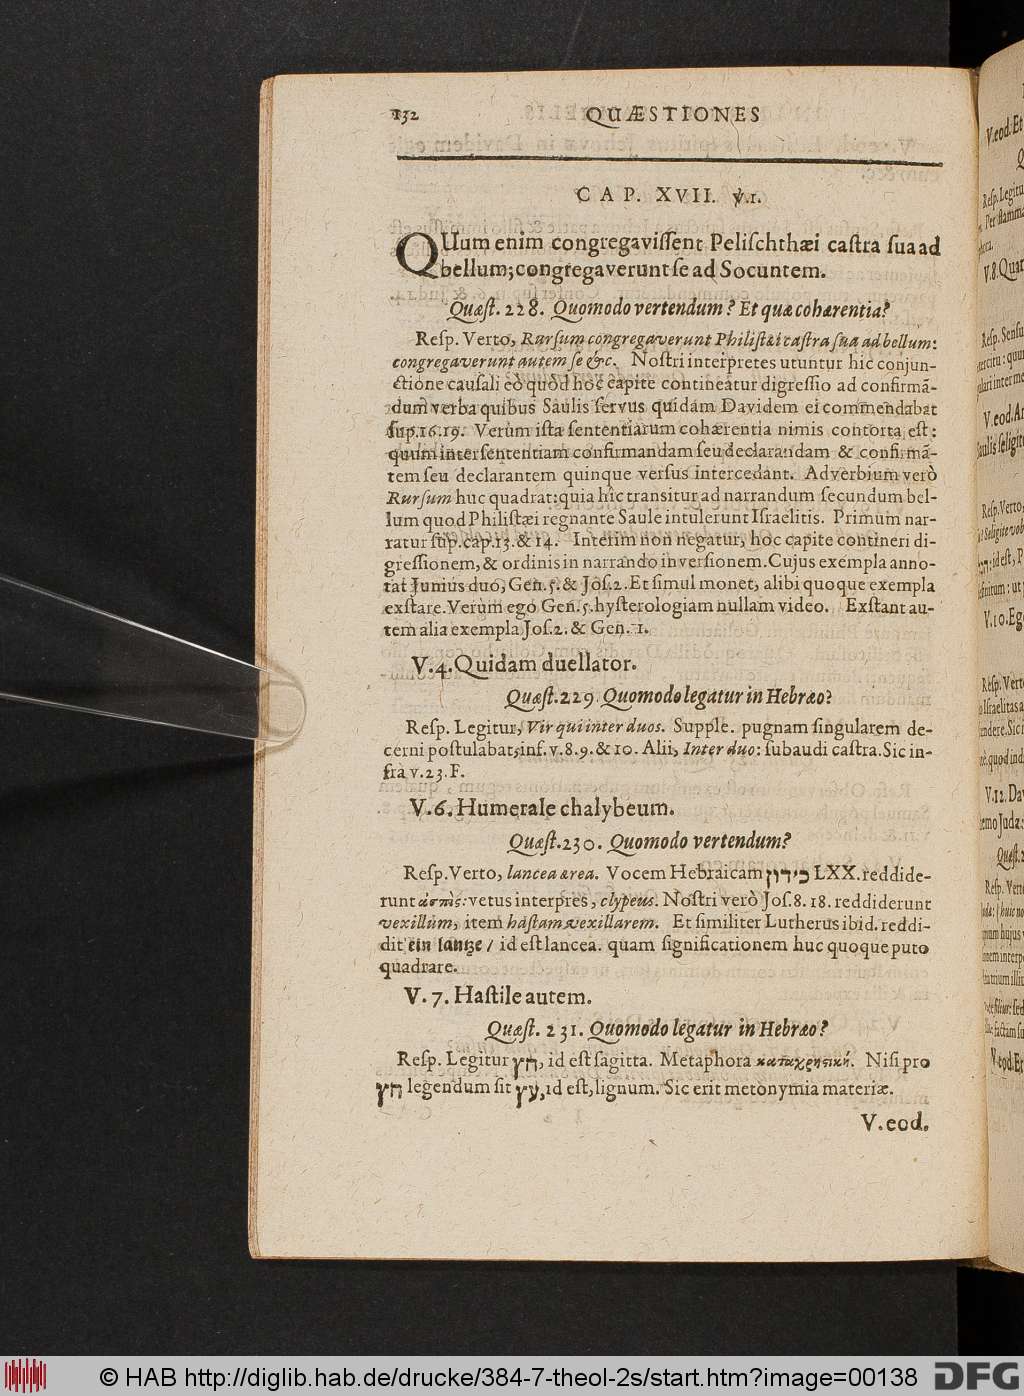 132 QUÆSTIONES
CAP. XVII. ℣.1.
QUum enim congregavissent Pelischthæi castra sua ad
bellum; congregaverunt se ad Socuntem.
Quæst. 228. Quomodo vertendum? Et quæ cohærentia?
Resp. Verto, Rursum congregaverunt Philistæi castra sua ad bellum:
congregaverunt autem se &c. Nostri interpretes utuntur hic conjun-
ctione causali eò quòd hoc capite contineatur digressio ad confirmā-
dum verba quibus Saulis servus quidam Davidem ei commendabat
sup.16.19. Verùm ista sententiarum cohærentia nimis contorta est:
quum inter sententiam confirmandam seu declarandam & confirmā-
tem seu declarantem quinque versus intercedant. Adverbium verò
Rursum huc quadrat: quia hîc transitur ad narrandum secundum bel-
lum quod Philistæi regnante Saule intulerunt Israelitis. Primum nar-
ratur sup.cap.13.& 14. Interim non negatur, hoc capite contineri di-
gressionem, & ordinis in narrando inversionem. Cujus exempla anno-
tat Junius duo, Gen.5.& Jos.2. Et simul monet, alibi quoque exempla
exstare. Verùm ego Gen.5. hysterologiam nullam video. Exstant au-
tem alia exempla Jos.2. & Gen. 1.
V.4. Quidam duellator.
Quæst.229. Quomodo legatur in Hebræo?
Resp. Legitur, Vir qui inter duos. Supple. pugnam singularem de-
cerni postulabat, inf. v.8.9.& 10. Alii, Inter duo: subaudi castra. Sic in-
frà v.23.F.
V.6. Humerale chalybeum.
Quæst.230. Quomodo vertendum?
Resp. Verto, lancea ærea. Vocem Hebraicam כידון LXX. reddide-
runt ἀσπίς: vetus interpres, clypeus. Nostri verò Jos.8.18. reddiderunt
vexillum, item hastam vexillarem. Et similiter Lutherus ibid. reddi-
dit ein lantze / id est lancea. quam significationem huc quoque puto
quadrare.
V. 7. Hastile autem.
Quæst. 231. Quomodo legatur in Hebræo?
Resp. Legitur חץ, id est sagitta. Metaphora καταχρηστική. Nisi pro
חץ legendum sit עץ, id est, lignum. Sic erit metonymia materiæ.
V. eod.
© HAB http://diglib.hab.de/drucke/384-7-theol-2s/start.htm?image=00138
DFG